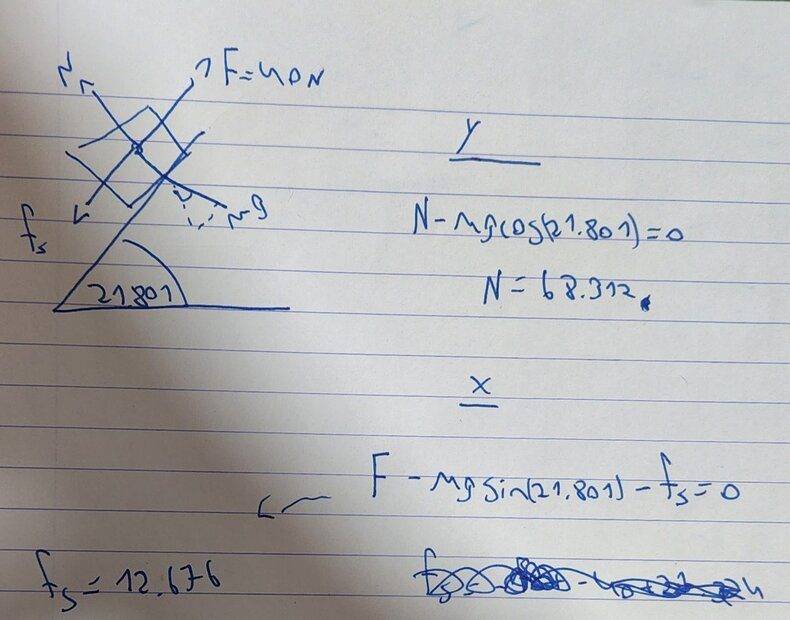 N
F=40N
fs
mg
21.801
y
N-mgcos(21.801)=0
N=68.312.
x
F-mgsin(21.801)-fs=0
fs=12.676